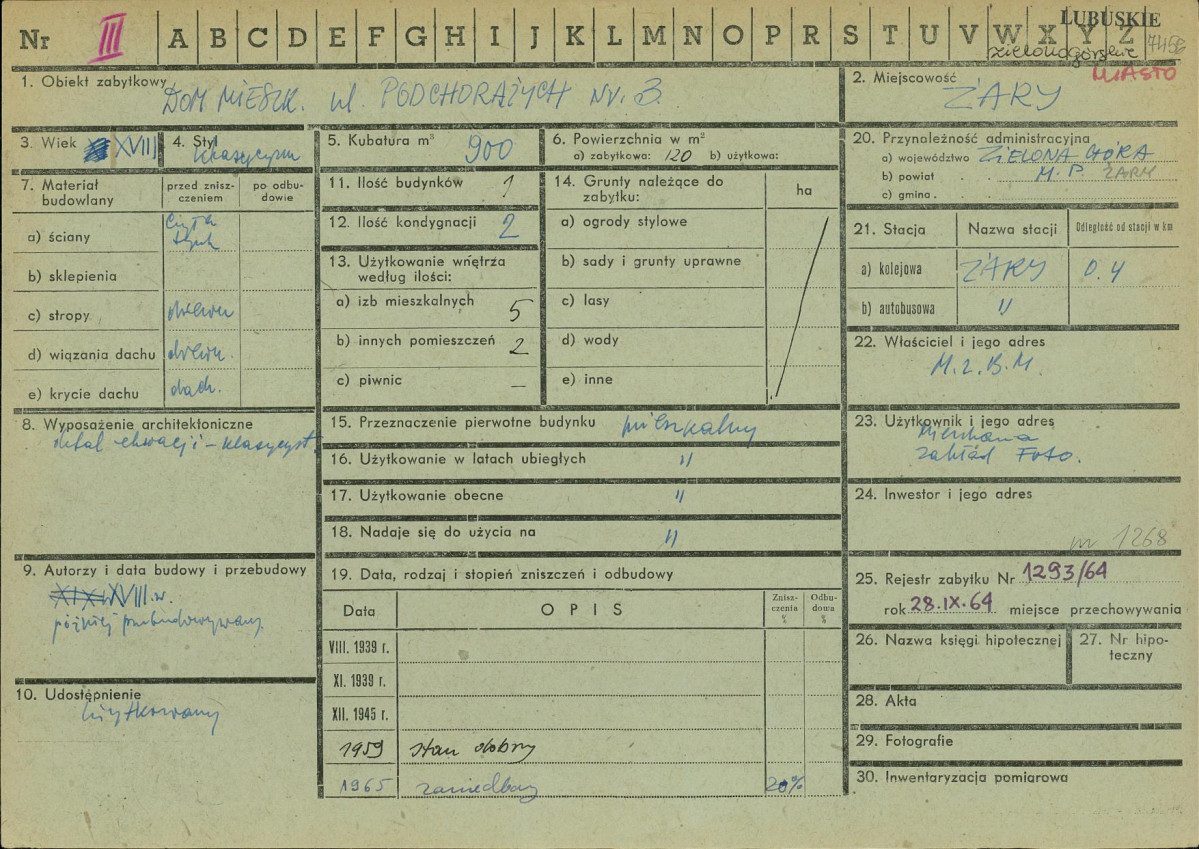 LUBUSKIE
Nr III A B C D E F G H I J K L M N O P R S T U V W X Y Z
zielonogórskie
MIASTO
1. Obiekt zabytkowy DOM MIESZK. ul. PODCHORĄŻYCH NR. 3.
2. Miejscowość ŻARY
3. Wiek XVIII
4. Styl klasycyzm
5. Kubatura m³ 900
6. Powierzchnia w m²
a) zabytkowa: 120 b) użytkowa:
7. Materiał budowlany
przed zniszczeniem
po odbudowie
a) ściany cegła tynk
b) sklepienia
c) stropy drewn
d) wiązania dachu drewn.
e) krycie dachu dach.
8. Wyposażenie architektoniczne
detal elewacji - klasycyst.
9. Autorzy i data budowy i przebudowy
XIX XVIII w.
później przebudowywany
10. Udostępnienie
użytkowany
11. Ilość budynków 1
12. Ilość kondygnacji 2
13. Użytkowanie wnętrza
według ilości:
a) izb mieszkalnych 5
b) innych pomieszczeń 2
c) piwnic —
14. Grunty należące do
zabytku:
ha
a) ogrody stylowe
b) sady i grunty uprawne
c) lasy
d) wody
e) inne
15. Przeznaczenie pierwotne budynku mieszkalny
16. Użytkowanie w latach ubiegłych "
17. Użytkowanie obecne "
18. Nadaje się do użycia na "
19. Data, rodzaj i stopień zniszczeń i odbudowy
Data OPIS Zniszczenia % Odbudowa %
VIII. 1939 r.
XI. 1939 r.
XII. 1945 r.
1959 stan dobry
1965 zaniedbany 20%
20. Przynależność administracyjna
a) województwo ZIELONA GÓRA
b) powiat M. P. ŻARY
c) gmina
21. Stacja Nazwa stacji Odległość od stacji w km
a) kolejowa ŻARY 0.4
b) autobusowa "
22. Właściciel i jego adres
M.Z.B.M.
23. Użytkownik i jego adres
Mieszkania
Zakład Foto.
24. Inwestor i jego adres
nr 1268
25. Rejestr zabytku Nr 1293/64
rok 28.IX.64 miejsce przechowywania
26. Nazwa księgi hipotecznej
27. Nr hipoteczny
28. Akta
29. Fotografie
30. Inwentaryzacja pomiarowa